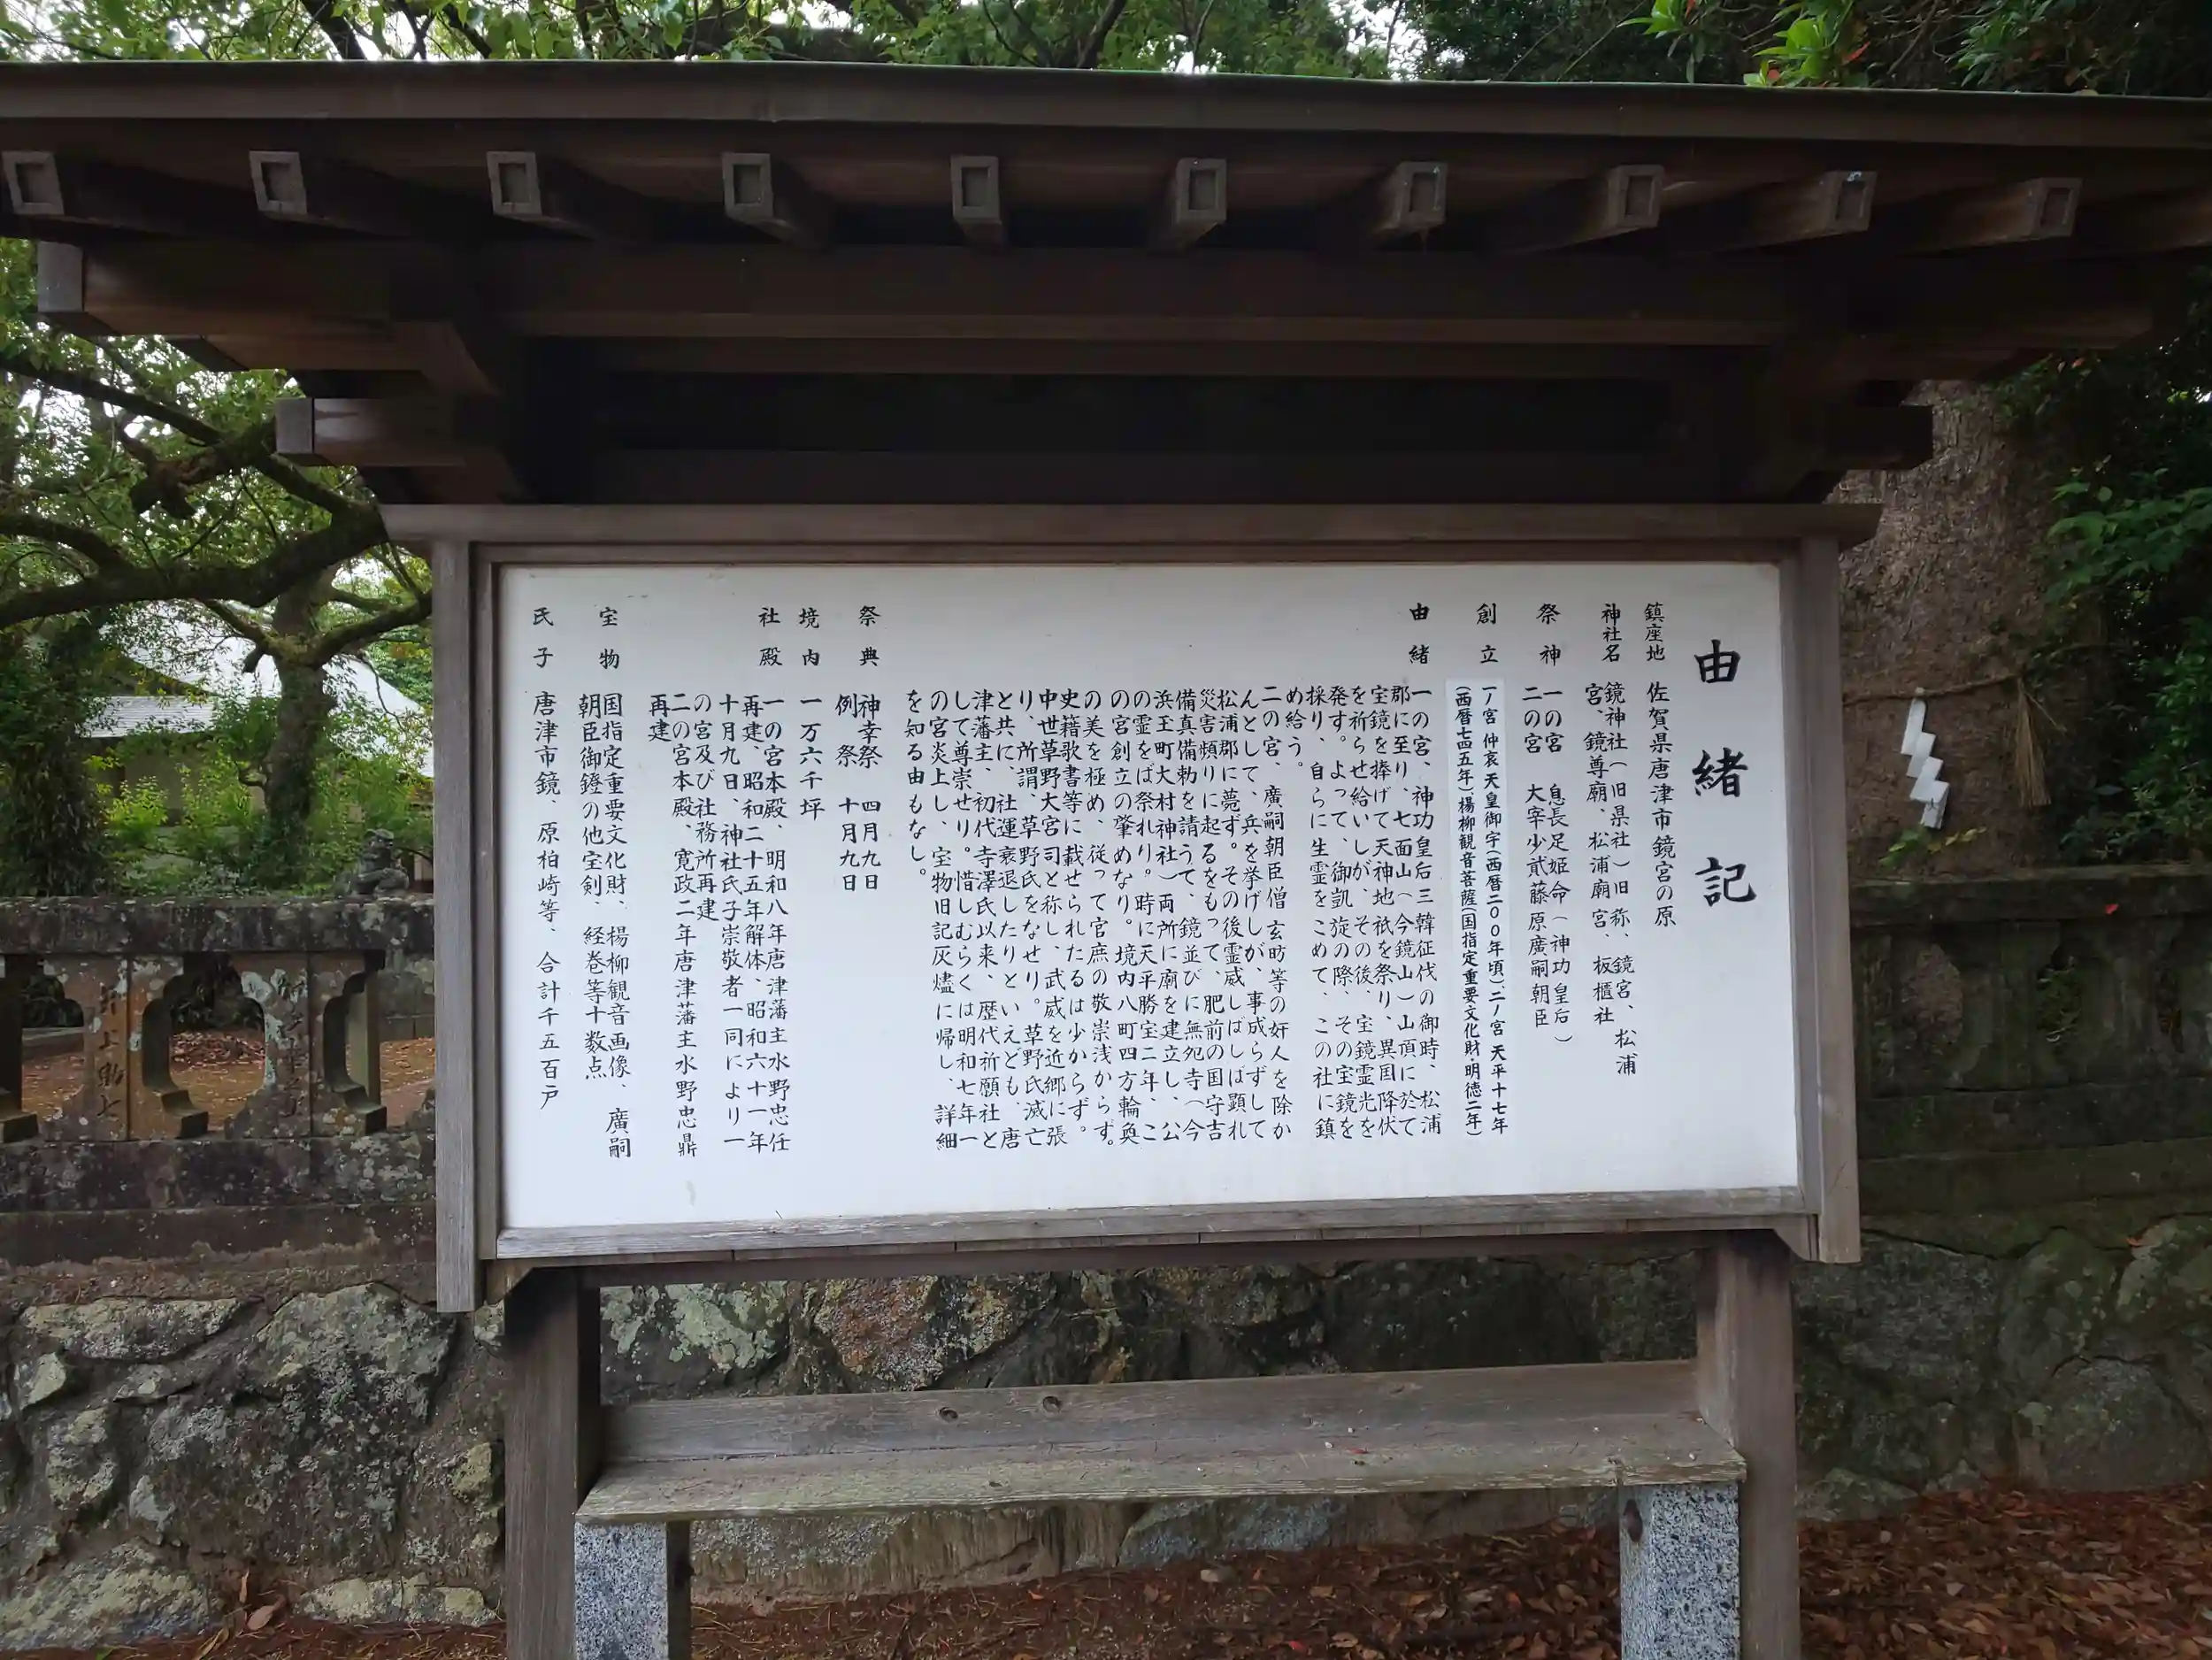 由緒記
鎮座地 佐賀県唐津市鏡宮の原
神社名 鏡神社(旧県社)旧称、鏡宮、松浦
宮、鏡尊廟、松浦廟宮、板櫃社
祭神 一の宮 息長足姫命(神功皇后)
二の宮 大宰少貳藤原廣嗣朝臣
創立 一ノ宮 仲哀天皇御宇(西暦二〇〇年頃)、二ノ宮 天平十七年
(西暦七四五年)、楊柳観音菩薩(国指定重要文化財・明徳二年)
由緒 一の宮、神功皇后三韓征伐の御時、松浦
郡に至り、七面山(今鏡山)山頂に於て
宝鏡を捧げて天神地祇を祭り、異国降伏
を祈らせ給いしが、その後、宝鏡霊光を
発す。よって、御凱旋の際、その宝鏡を
採り、自らに生霊をこめて、この社に鎮
め給う。
二の宮、廣嗣朝臣僧玄昉等の奸人を除か
んとして、兵を挙げしが、事成らずして
松浦郡に薨ず。その後霊威しばしば顕れ
災害頻りに起るをもって、肥前の国守吉
備真備勅を請うて、鏡並びに無怨寺(今
浜玉町大村神社)両所に廟を建立し、公
の霊をば祭れり。時に天平勝宝二年、こ
の宮創立の肇めなり。境内八町四方輪奐
の美を極め、従って官庶の敬崇浅からず。
史籍歌書等に載せられたるは少からず。
中世草野大宮司と称し、武威を近郷に張
り、所謂、草野氏をなせり。草野氏滅亡
と共に、社運衰退したりといえども、唐
津藩主、初代寺澤氏以来、歴代祈願社と
して尊崇せり。惜しむらくは明和七年一
の宮炎上し、宝物旧記灰燼に帰し、詳細
を知る由もなし。
祭典 神幸祭 四月九日
例祭 十月九日
境内 一万六千坪
社殿 一の宮本殿、明和八年唐津藩主水野忠任
再建、昭和二十五年解体、昭和六十一年
十月九日、神社氏子崇敬者一同により一
の宮及び社務所再建
二の宮本殿、寛政二年唐津藩主水野忠鼎
再建
宝物 国指定重要文化財、楊柳観音画像、廣嗣
朝臣御鐙の他宝剣、経巻等十数点
氏子 唐津市鏡、原柏崎等、合計千五百戸